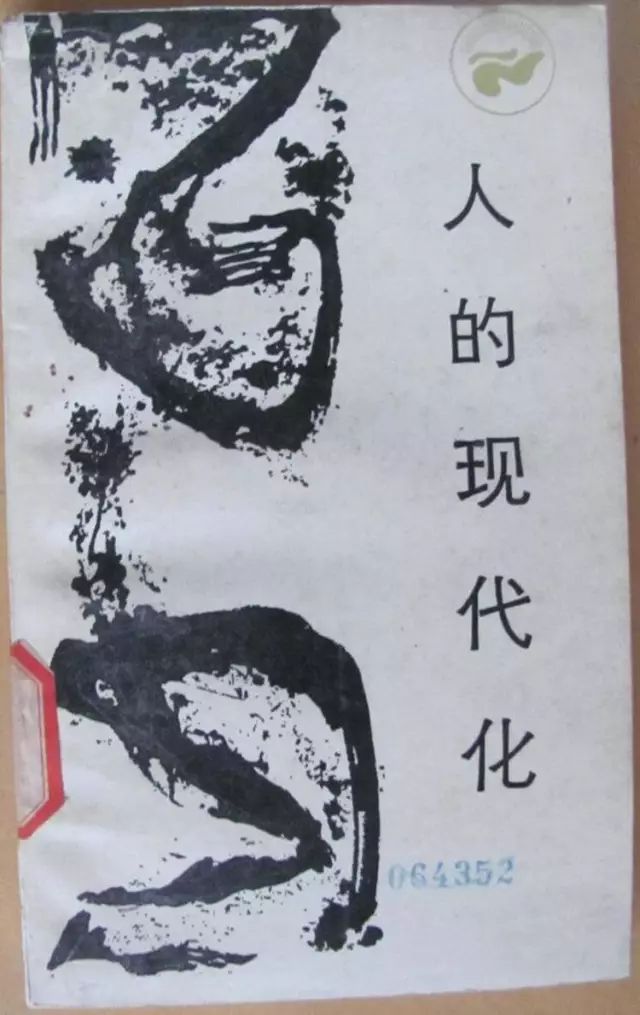 人的现代化
064352